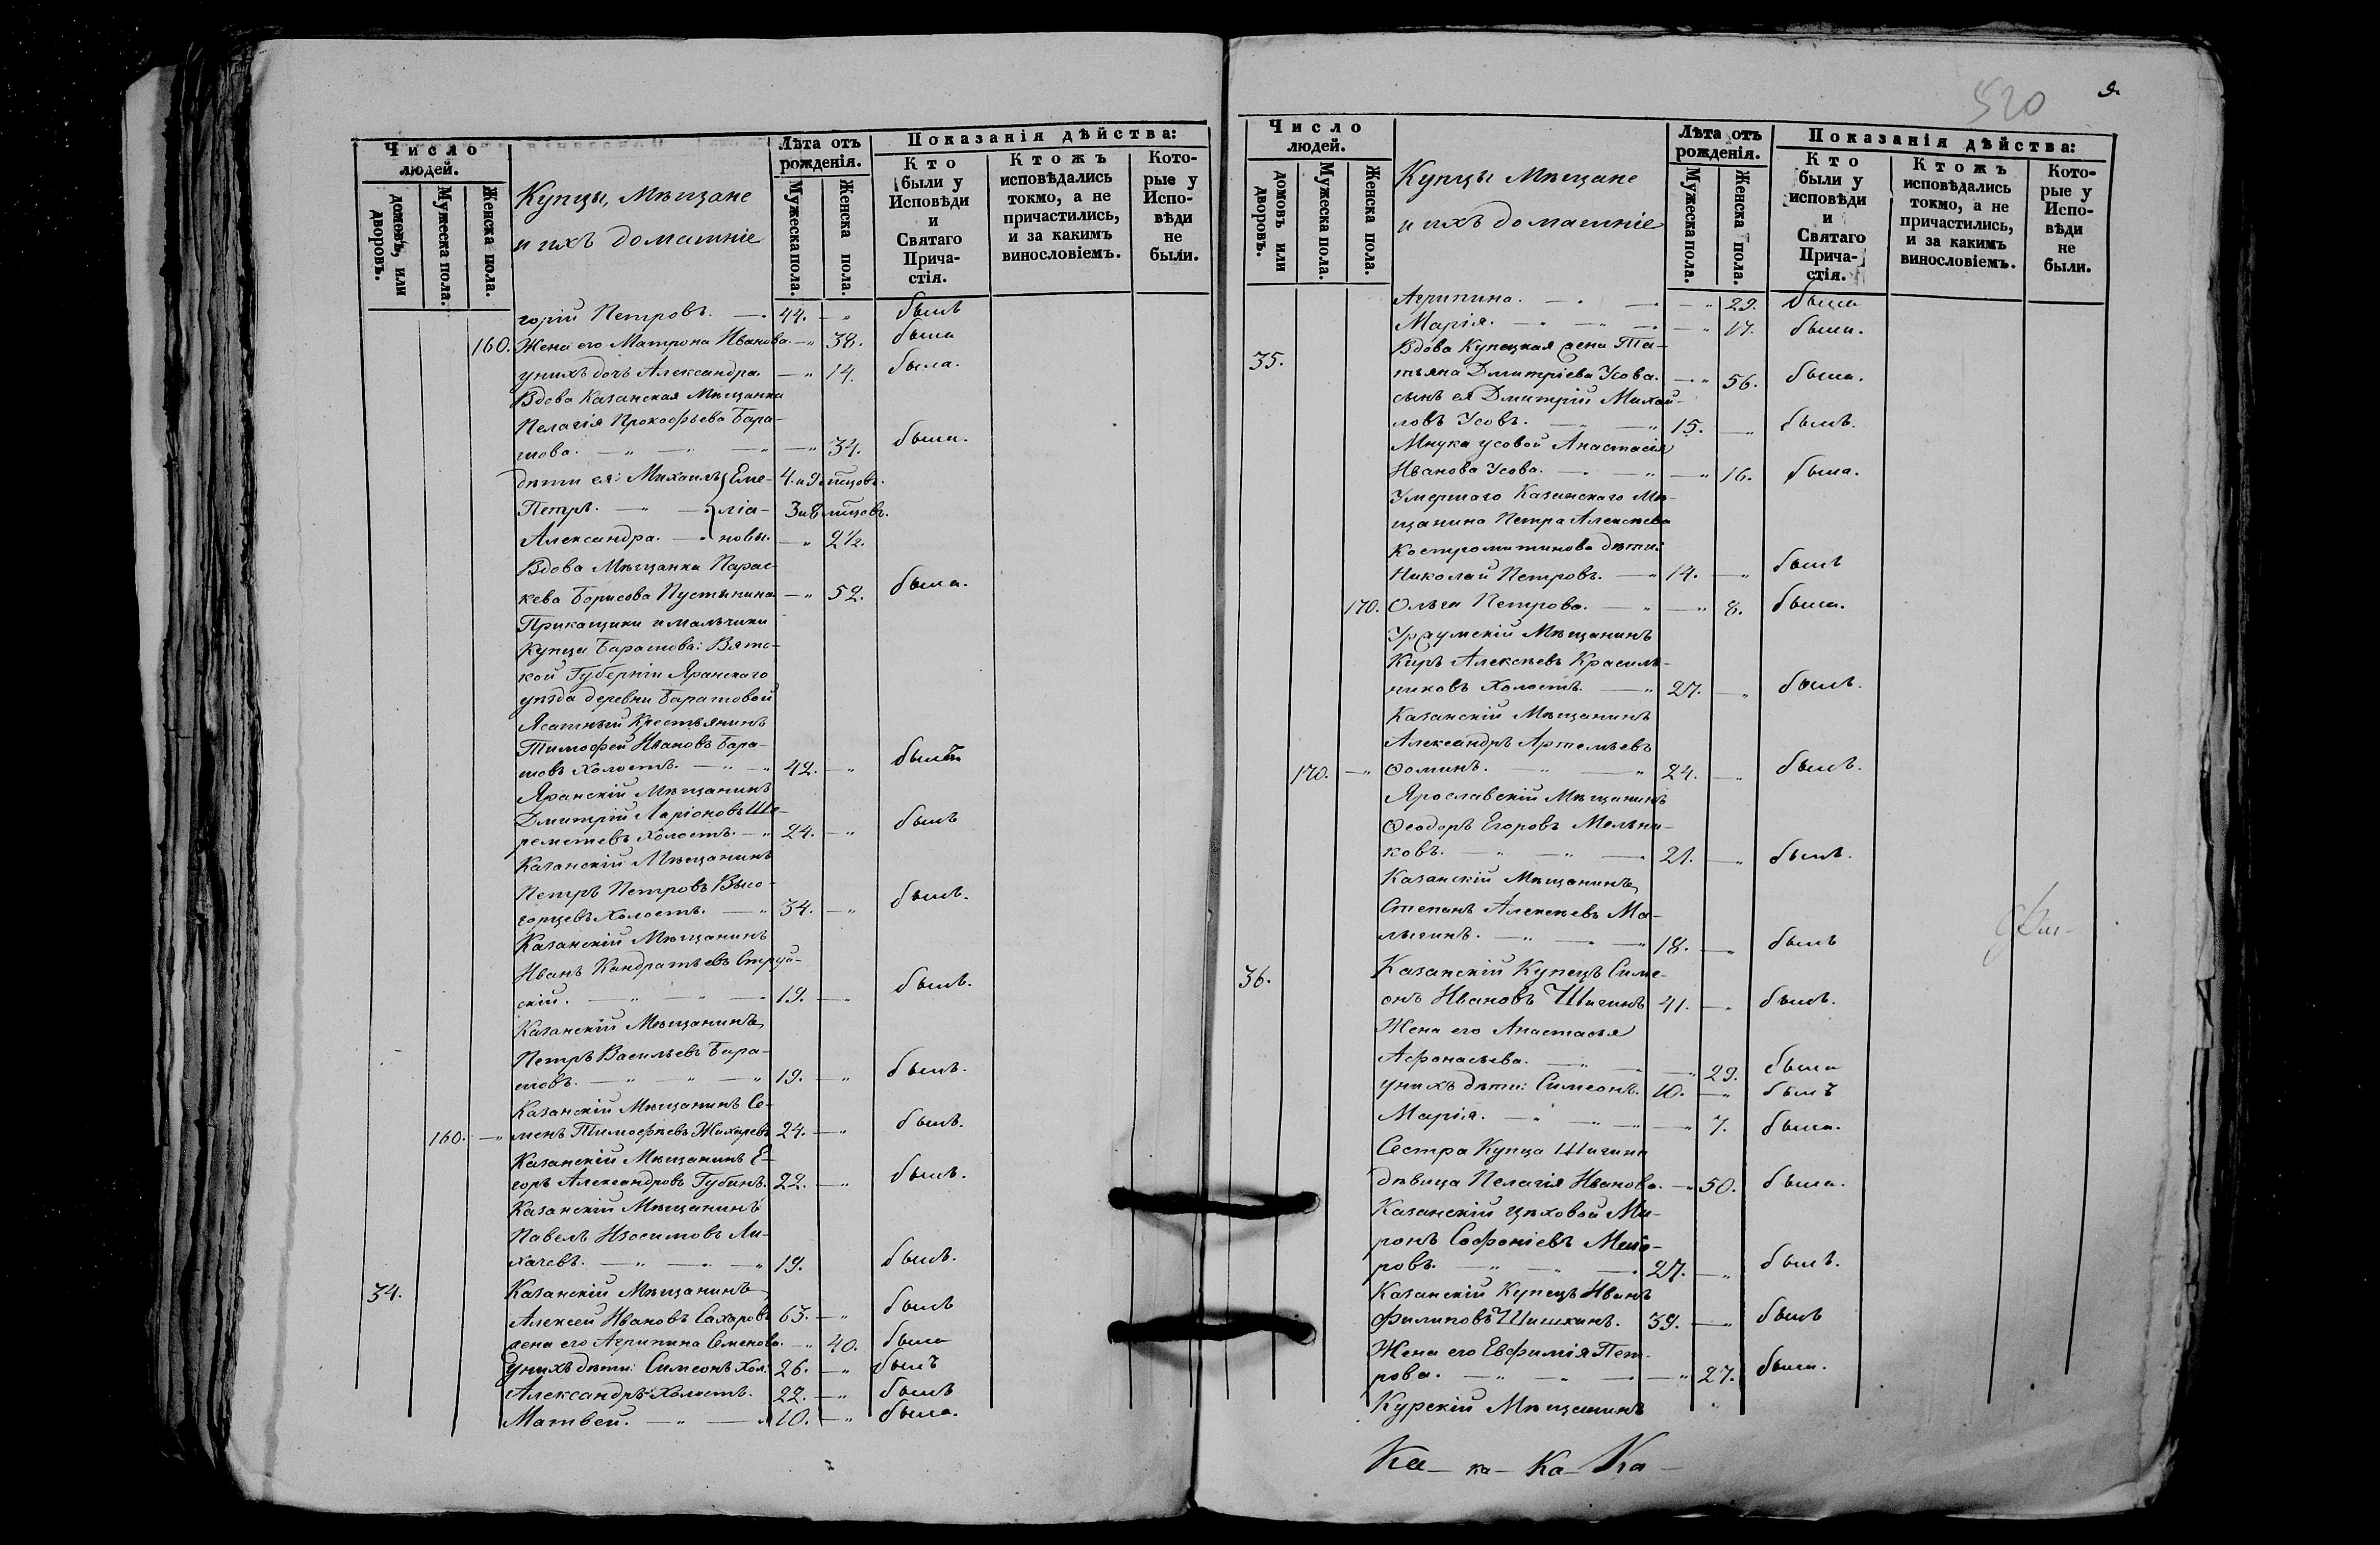 Число людей.
домовъ, или дворовъ.
Мужеска пола.
Женска пола.
Купцы, Мѣщане
и ихъ домашніе
Лѣта отъ рожденія.
Мужеска пола.
Женска пола.
Показанія дѣйства:
Кто были у Исповѣди и Святаго Прича-стія.
Ктожъ исповѣдались токмо, а не причастились, и за какимъ винословіемъ.
Кото-рые у Испо-вѣди не были.
горій Петровъ. — 44. — " былъ
160. Жена его Матрона Иванова — " 38. была
у нихъ дочь Александра — " 14. была.
Вдова Казанская Мѣщанка
Пелагія Прокофьева Бара-
шова. — " — " — " 34. была.
дѣти ея: Михаилъ } Еме- 4. и 9 мѣсцовъ.
Петръ. — " — } ліа- 3 и 8 мѣсцовъ.
Александра. — " новы. — " 2 ½.
Вдова Мѣщанка Парас-
кева Борисова Пустынина — " 52. была.
Прикащики и мальчики
Купца Барашова: Вятс-
кой Губерніи Яранскаго
уѣзда деревни Барашовой
Ясашный Крестьянинъ
Тимофей Ивановъ Бара-
шовъ Холостъ. — " — " 42. — " былъ
Яранскій Мѣщанинъ
Дмитрій Ларіоновъ Ше-
реметевъ Холостъ. — " 24. — " былъ
Казанскій Мѣщанинъ
Петръ Петровъ Высо-
горцевъ Холостъ. — " 34. — " былъ.
Казанскій Мѣщанинъ
Иванъ Кандратьевъ Струй-
скій. — " — " — " 19. — " былъ.
Казанскій Мѣщанинъ
Петръ Васильевъ Бара-
шовъ. — " — " — " 19. — " былъ.
Казанскій Мѣщанинъ Се-
160. — " менъ Тимофѣевъ Жихаревъ 24. — " былъ.
Казанскій Мѣщанинъ Е-
горъ Александровъ Губинъ. 22. — " былъ.
Казанскій Мѣщанинъ
Павелъ Изосимовъ Ли-
хачевъ. — " — " — " 19. былъ.
34. Казанскій Мѣщанинъ
Алексей Ивановъ Сахаровъ 63. — " былъ
жена его Агрипина Семенова. — " 40. была
у нихъ дѣти: Симеонъ Хол: 26. — " былъ
Александръ Холостъ. 22. — " былъ
Матвей. — " — " 10. — " была.
520
9.
Число людей.
домовъ или дворовъ.
Мужеска пола.
Женска пола.
Купцы Мѣщане
и ихъ домашніе
Лѣта отъ рожденія.
Мужеска пола.
Женска пола.
Показанія дѣйства:
Кто были у исповѣди и Святаго Прича-стія.
Ктожъ исповѣдались токмо, а не причастились, и за какимъ винословіемъ.
Кото-рые у Испо-вѣди не были.
Агрипина. — " — " — " 29. была
Марія. — " — " — " 17. была.
35. Вдова Купецкая жена Та-
тьяна Дмитріева Усова. — " 56. была.
сынъ ея Дмитрій Михай-
ловъ Усовъ. — " — " 15. — " былъ.
Мнука Усовой Анастасія
Иванова Усова. — " — " — " 16. была.
Умершаго Казанскаго Мѣ-
щанина Петра Алексѣева
Костромитинова дѣти:
Николай Петровъ. — " 14. — " былъ
170. Ольга Петрова. — " — " 8. была.
Уржумскій Мѣщанинъ
Киръ Алексѣевъ Красиль-
никовъ Холостъ. — " 27. — " былъ.
Казанскій Мѣщанинъ
Александръ Артемьевъ
170. — " Ѳоминъ. — " — " 24. — " былъ.
Ярославскій Мѣщанинъ
Ѳеодоръ Егоровъ Мельни-
ковъ. — " — " — " 21. — " былъ.
Казанскій Мѣщанинъ
Степанъ Алексѣевъ Ма-
лыгинъ. — " — " — " 18. — " былъ
36. Казанскій Купецъ Симе-
онъ Ивановъ Шигинъ 41. — " былъ.
Жена его Анастасья
Афонасьева. — " — " — " 29. была
у нихъ дѣти: Симеонъ. 10. — " былъ
Марія. — " — " — " 7. была.
Сестра Купца Шигина
дѣвица Пелагія Иванова. — " 50. была.
Казанскій цѣховой Ми-
ронъ Софоніевъ Маіо-
ровъ. — " — " — " 27. — " былъ.
Казанскій Купецъ Иванъ
Филиповъ Шишкинъ. 39. — " былъ
Жена его Евфимія Пет-
рова. — " — " — " 27. была.
Курскій Мѣщанинъ
Ка — ка — Ка — Ка —